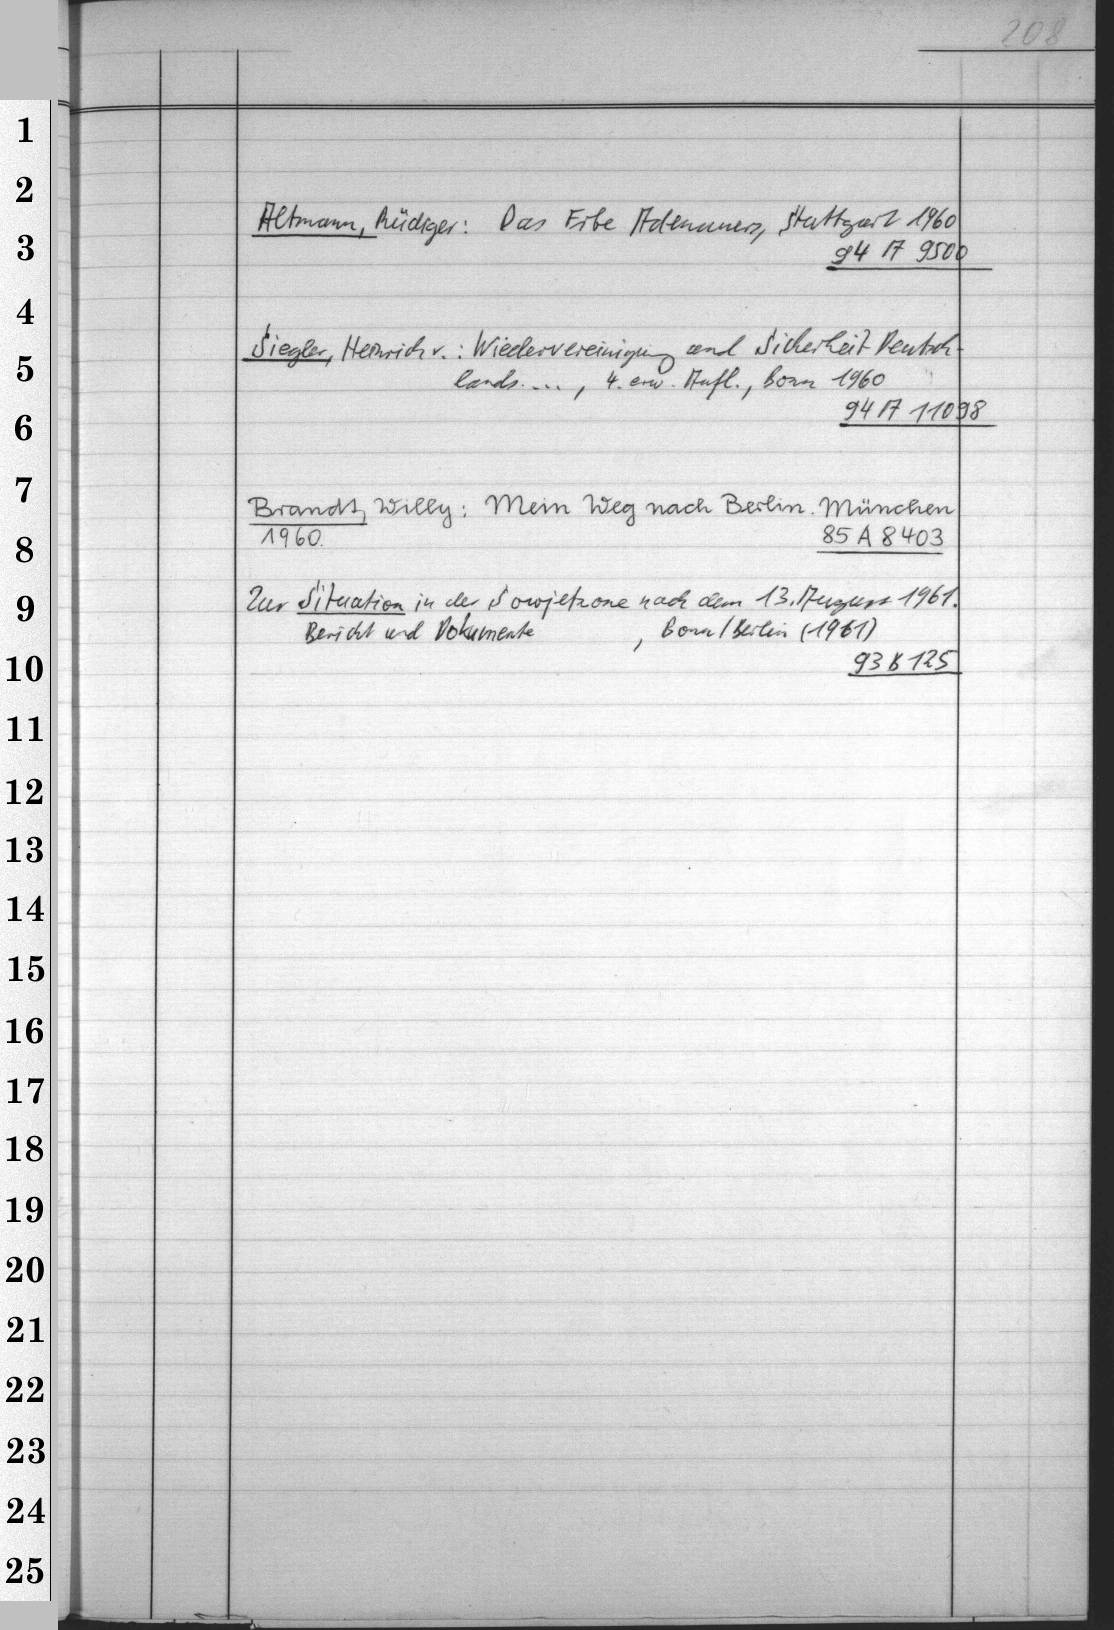 208
1
2
Altmann, Rüdiger: Das Erbe Adenauers, Stuttgart 1960
3
94 A 9500
4
Siegler, Heinrich v.: Wiedervereinigung und Sicherheit Deutsch-
5
lands...., 4. erw. Aufl., Bonn 1960
6
94 A 11098
7
Brandt, Willy: Mein Weg nach Berlin. München
8
1960. 85 A 8403
9
Zur Situation in der Sowjetzone nach dem 13. August 1961.
Bericht und Dokumente , Bonn/Berlin (1961)
10
93 B 125
11
12
13
14
15
16
17
18
19
20
21
22
23
24
25